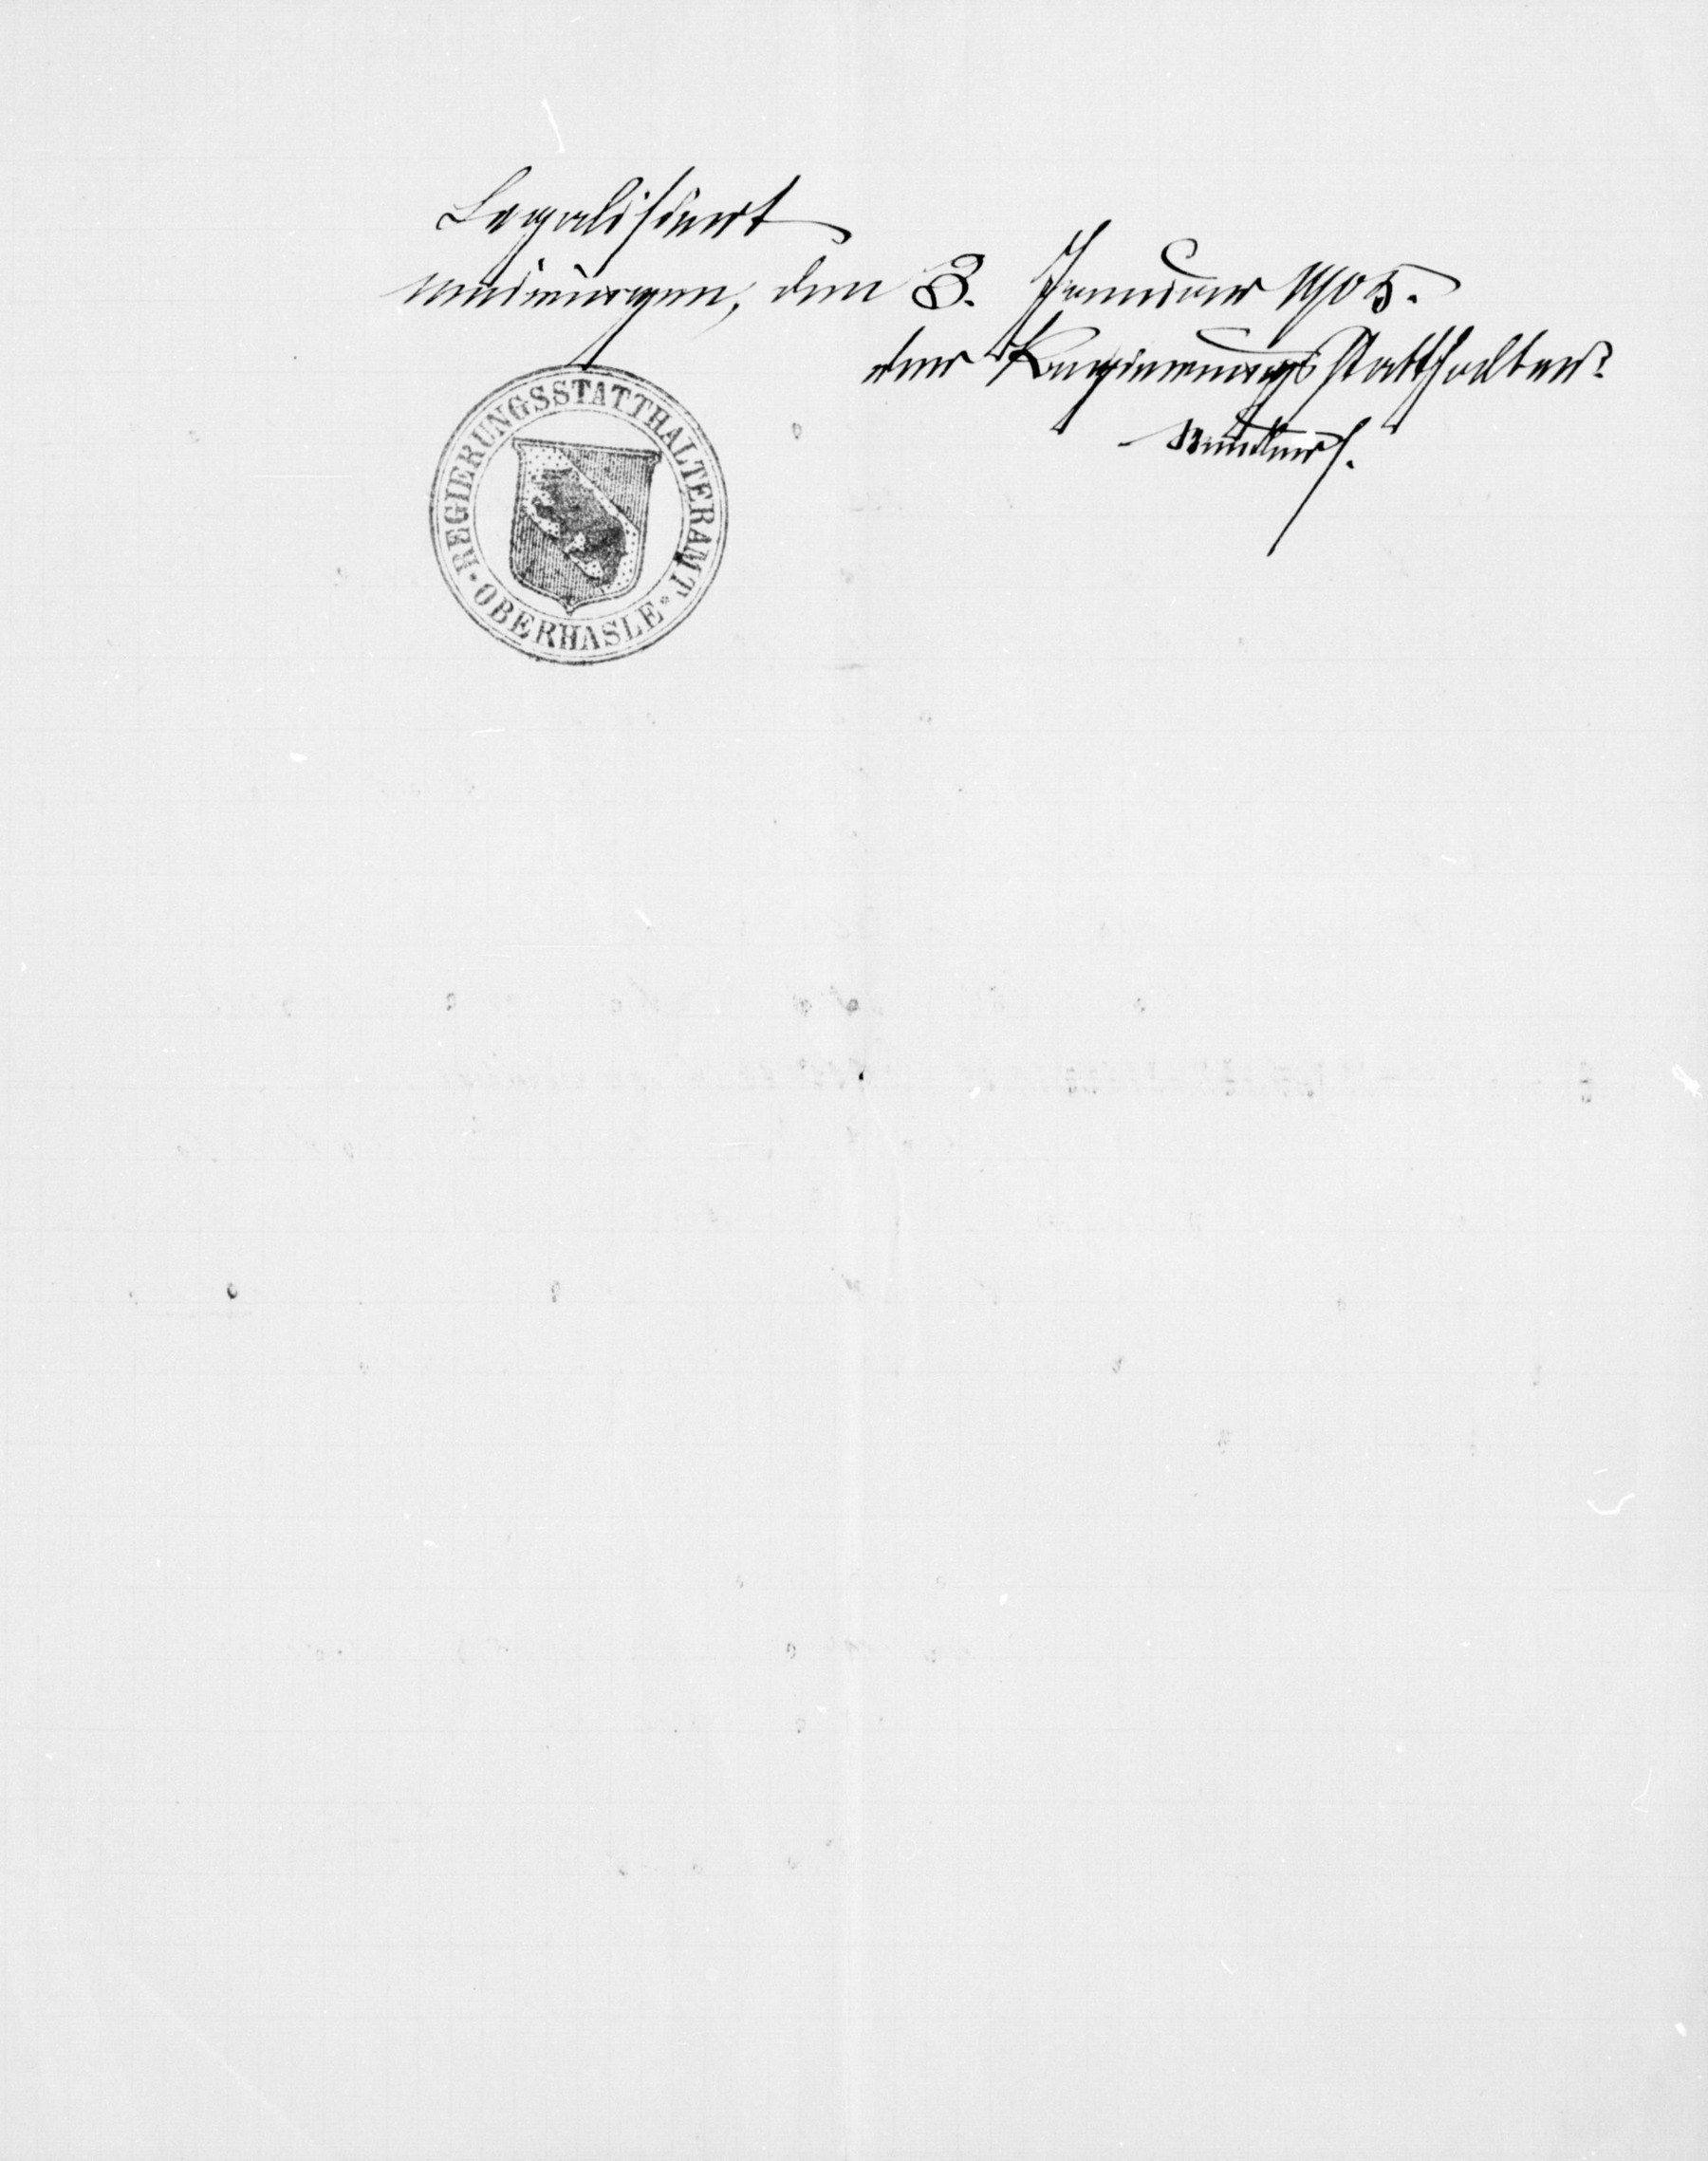 Legalisiert
Meiringen, den 3. Januar 1905.
der Regierungsstatthalter:
REGIERUNGSSTATTHALTERAMT
OBERHASLE